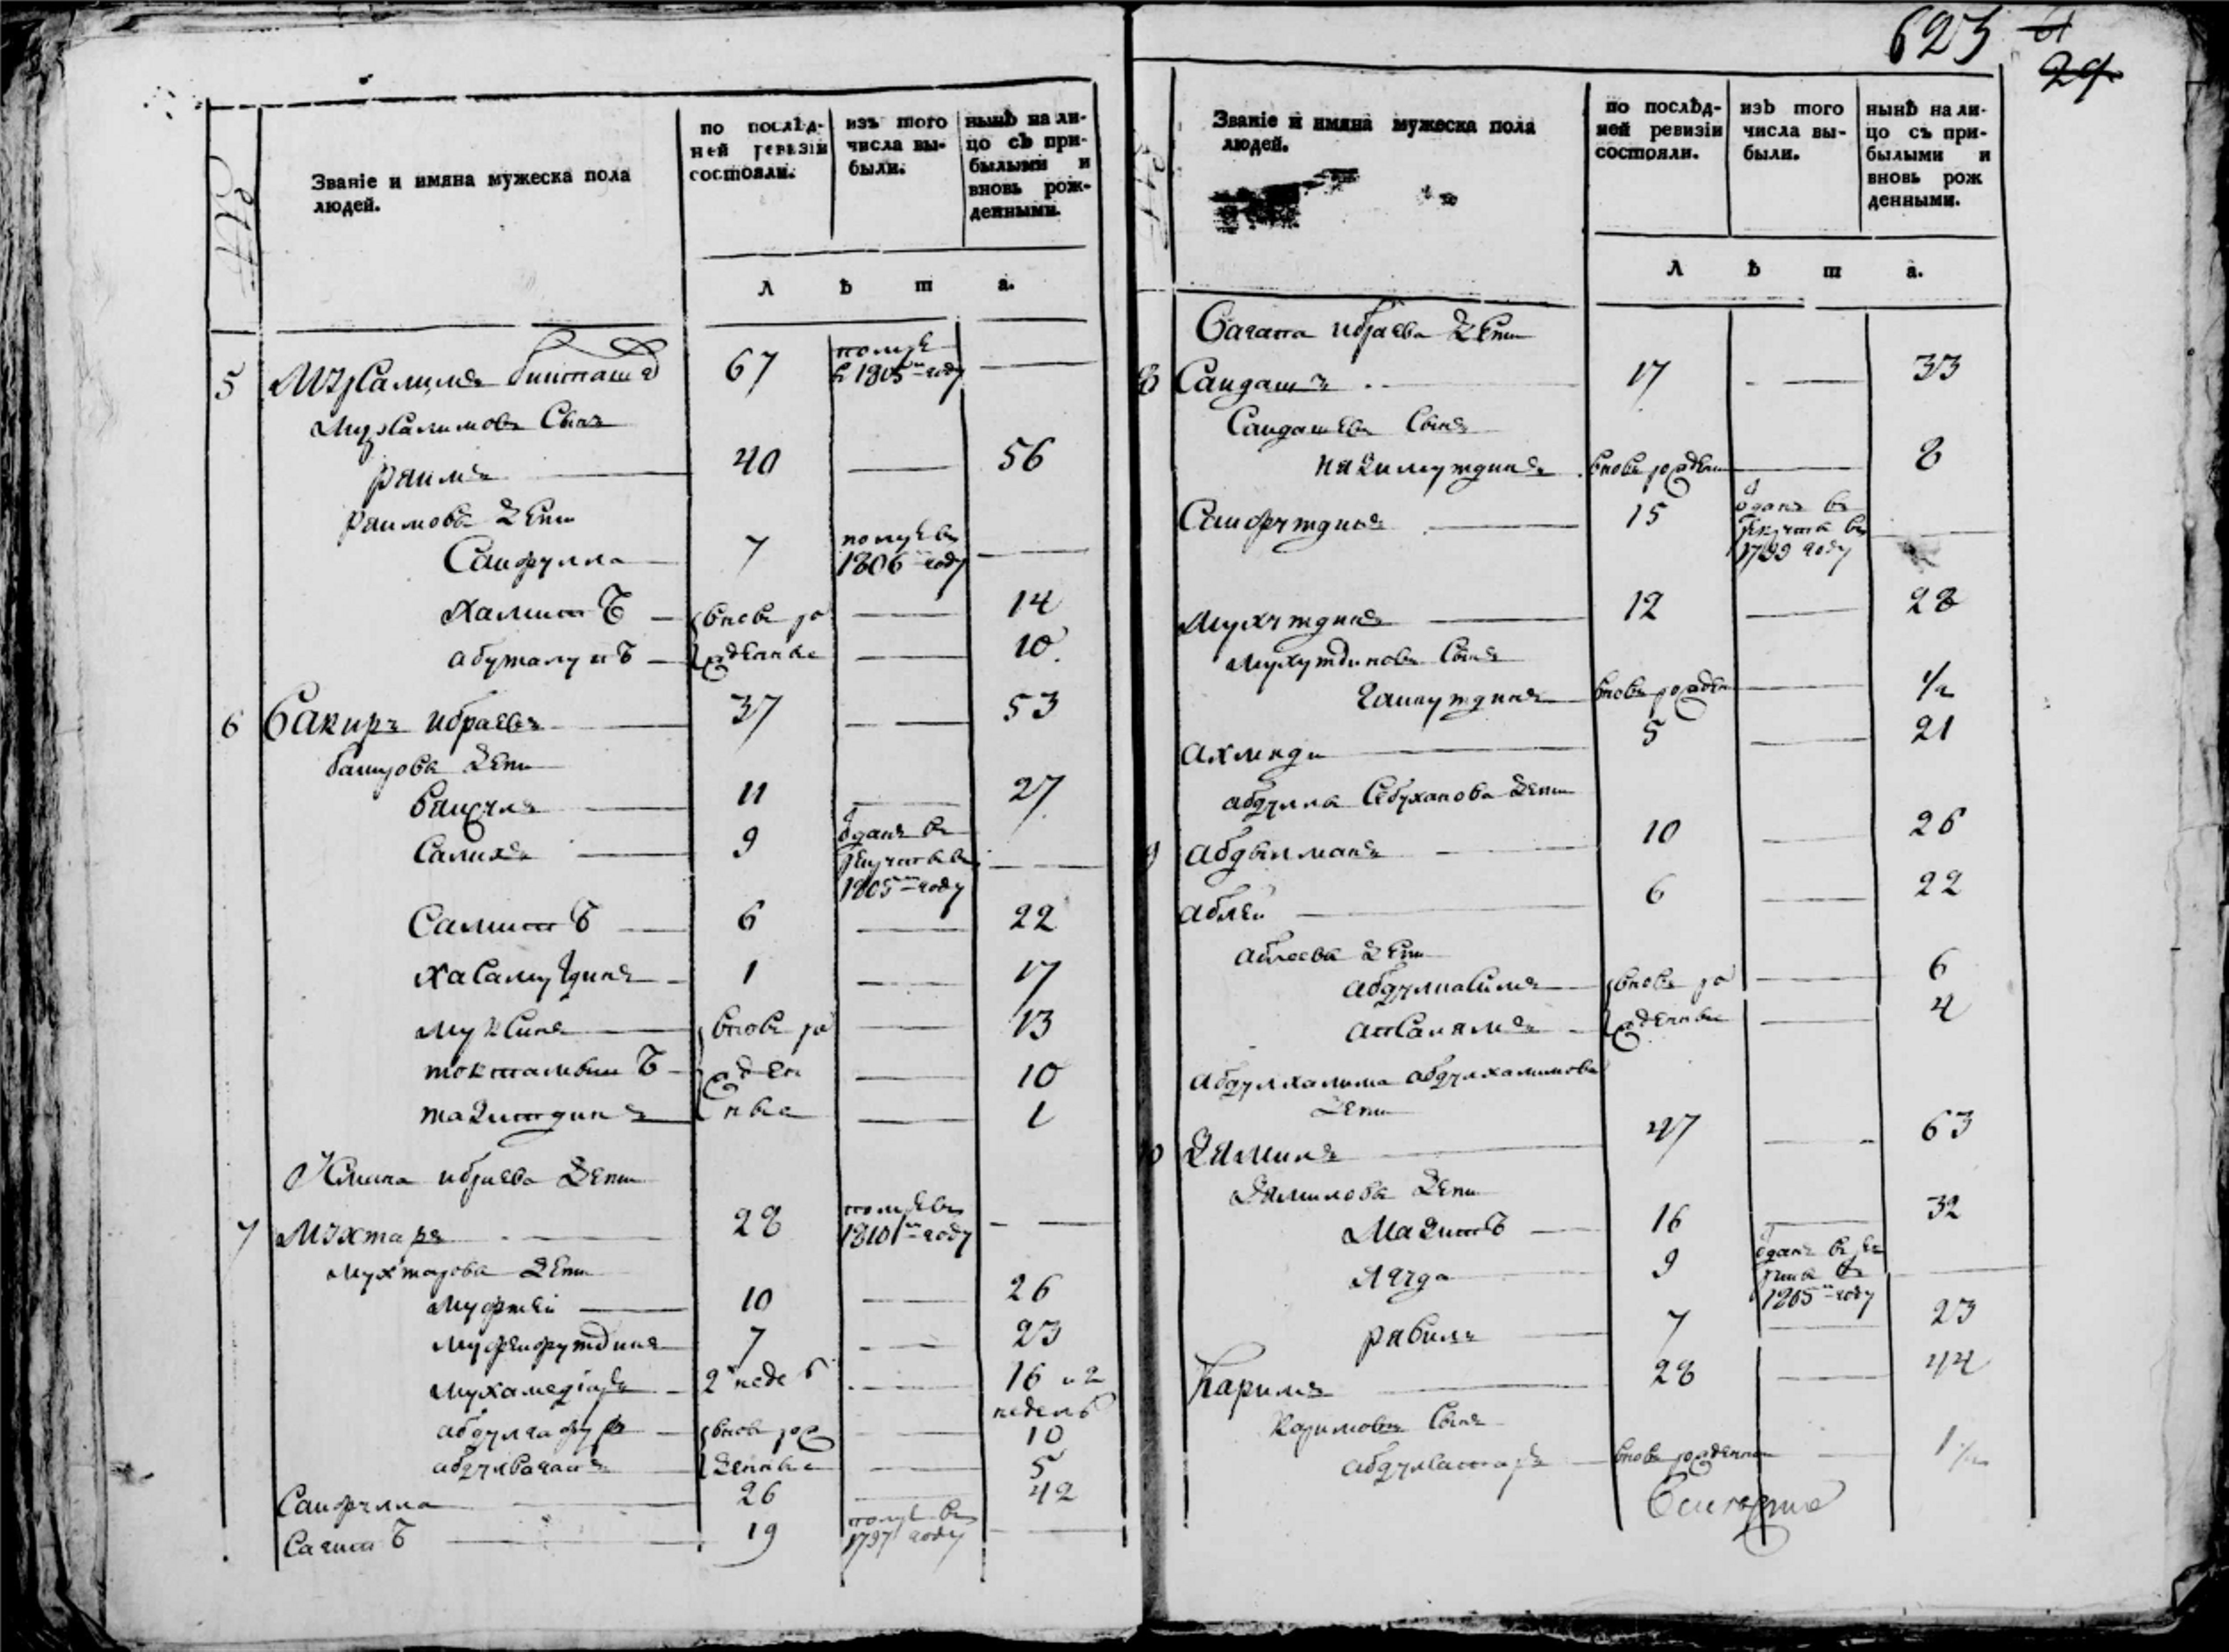 623
29
Званіе и имяна мужеска пола людей.
по послѣд-
ней ревизіи
состояли.
изъ того
числа вы-
были.
нынѣ на ли-
цо съ при-
былыми и
вновь рож-
денными.
л ѣ т а.
5 67 помре
в 1805м году —
Мурсалимовъ Сынъ
раимъ 40 — 56
раимовы дети
Саифулла 7 помре въ
1806м году —
халитъ вновь ро — 14
абуталипъ жденные — 10
6 бакиръ ибраевъ 37 — 53
бакировы дети
11 — 27
Салихъ 9 отданъ въ
рекруты въ
1805м году —
Самитъ 6 — 22
хасамутдинъ 1 — 17
муксинъ вновь ро — 13
жден — 10
тазитдинъ ные — 1
ибраева дети
7 Мухтаръ 28 помре въ
1810м году —
мухтаровы дети
муфтей 10 — 26
7 — 23
мухамедіаръ 2 неде — 16 и 2
недель
абдулгафуръ вновь рож — 10
абдулвагапъ денные — 5
Саифулла 26 — 42
Сагитъ 19 помре въ
1797 году —
Званіе и имяна мужеска пола
людей.
по послѣд-
ней ревизіи
состояли.
изъ того
числа вы-
были.
нынѣ на ли-
цо съ при-
былыми и
вновь рож
денными.
л ѣ т а.
ибраева дети
8 Саидашъ 17 — 33
Саидашевъ Сынъ
низамутдинъ вновь рожден — 8
Саифутдинъ 15 отданъ въ
рекруты въ
1799 году —
мухутдинъ 12 — 28
мухутдиновъ Сынъ
вновь рожден — 1/2
5 — 21
абдулла дети
9 абдылманъ 10 — 26
аблей 6 — 22
аблеевы дети
вновь ро — 6
апсалямъ жденные — 4
абдулхалима абдулхалимова
дети
10 Зямилъ 47 — 63
Зямиловы дети
Мазитъ 16 — 32
9 отданъ въ ре
круты въ
1805м году —
рябилъ 7 — 23
Каримъ 28 — 44
Каримовъ Сынъ
абдулсатаръ вновь рожденной — 1 1/2